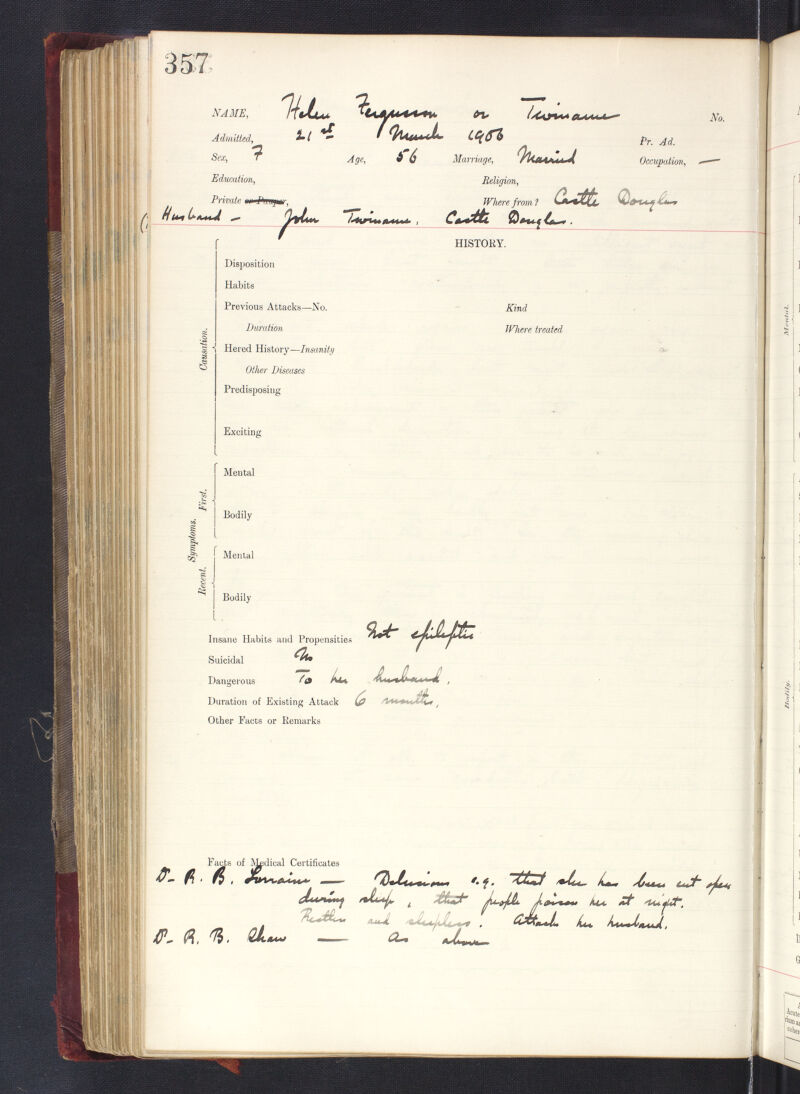 357
NAME, Helen Fergusson or Twiname No.
Admitted, 21st March 1906 Pr. Ad.
Sex, F Age, 56 Marriage, Married Occupation, —
Education, Religion,
Private or Pauper, Where from? Castle Douglas
Husband – John Twiname. Castle Douglas.
HISTORY.
Disposition
Habits
Previous Attacks—No. Kind
Duration Where treated
Causation.
Hered History—Insanity
Other Diseases
Predisposing
Exciting
Symptoms.
First.
Mental
Bodily
Recent.
Mental
Bodily
Insane Habits and Propensities Not epileptic
Suicidal No
Dangerous To her husband.
Duration of Existing Attack 6 months.
Other Facts or Remarks
Facts of Medical Certificates
Dr R. B. Lorraine — Delusions e.g. that she has been cut open
during sleep, that people poison her at night.
Restless and sleepless. Attacks her husband.
Dr R. B. Shaw — As above
Mental.
Bodily.